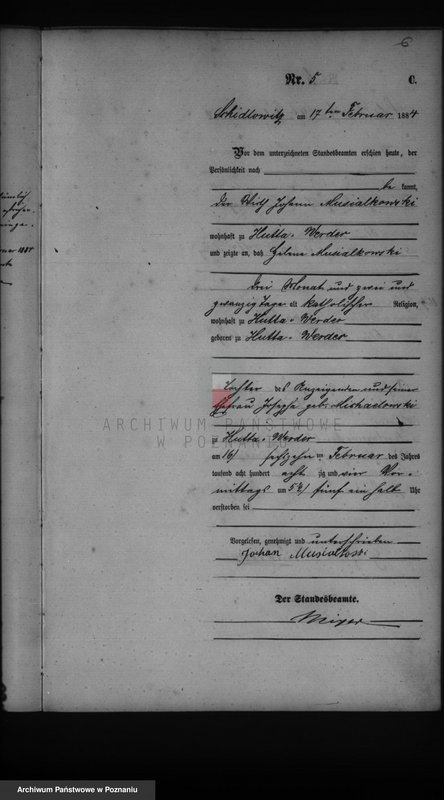 6
Nr. 5 C.
am 17ten Februar 1884
Vor dem unterzeichneten Standesbeamten erschien heute, der
Persönlichkeit nach
be kannt,
der Wirth Johann Musialkowski
wohnhaft zu Hutta-Werder
und zeigte an, daß Helene Musialkowski
drei Monat und zwei und
zwanzig Tage alt katholischer Religion,
wohnhaft zu Hutta-Werder
geboren zu Hutta-Werder
Tochter des Anzeigenden und seiner
Ehefrau Josepha geb. Michalowski
zu Hutta-Werder
am 16/ sechszehn ten Februar des Jahres
tausend acht hundert acht zig und vier Vor-
mittags um 5½/ fünf ein halb Uhr
verstorben sei
Vorgelesen, genehmigt und unterschrieben
Johan
Der Standesbeamte.
ARCHIWUM PAŃSTWOWE
W POZNANIU
Archiwum Państwowe w Poznaniu